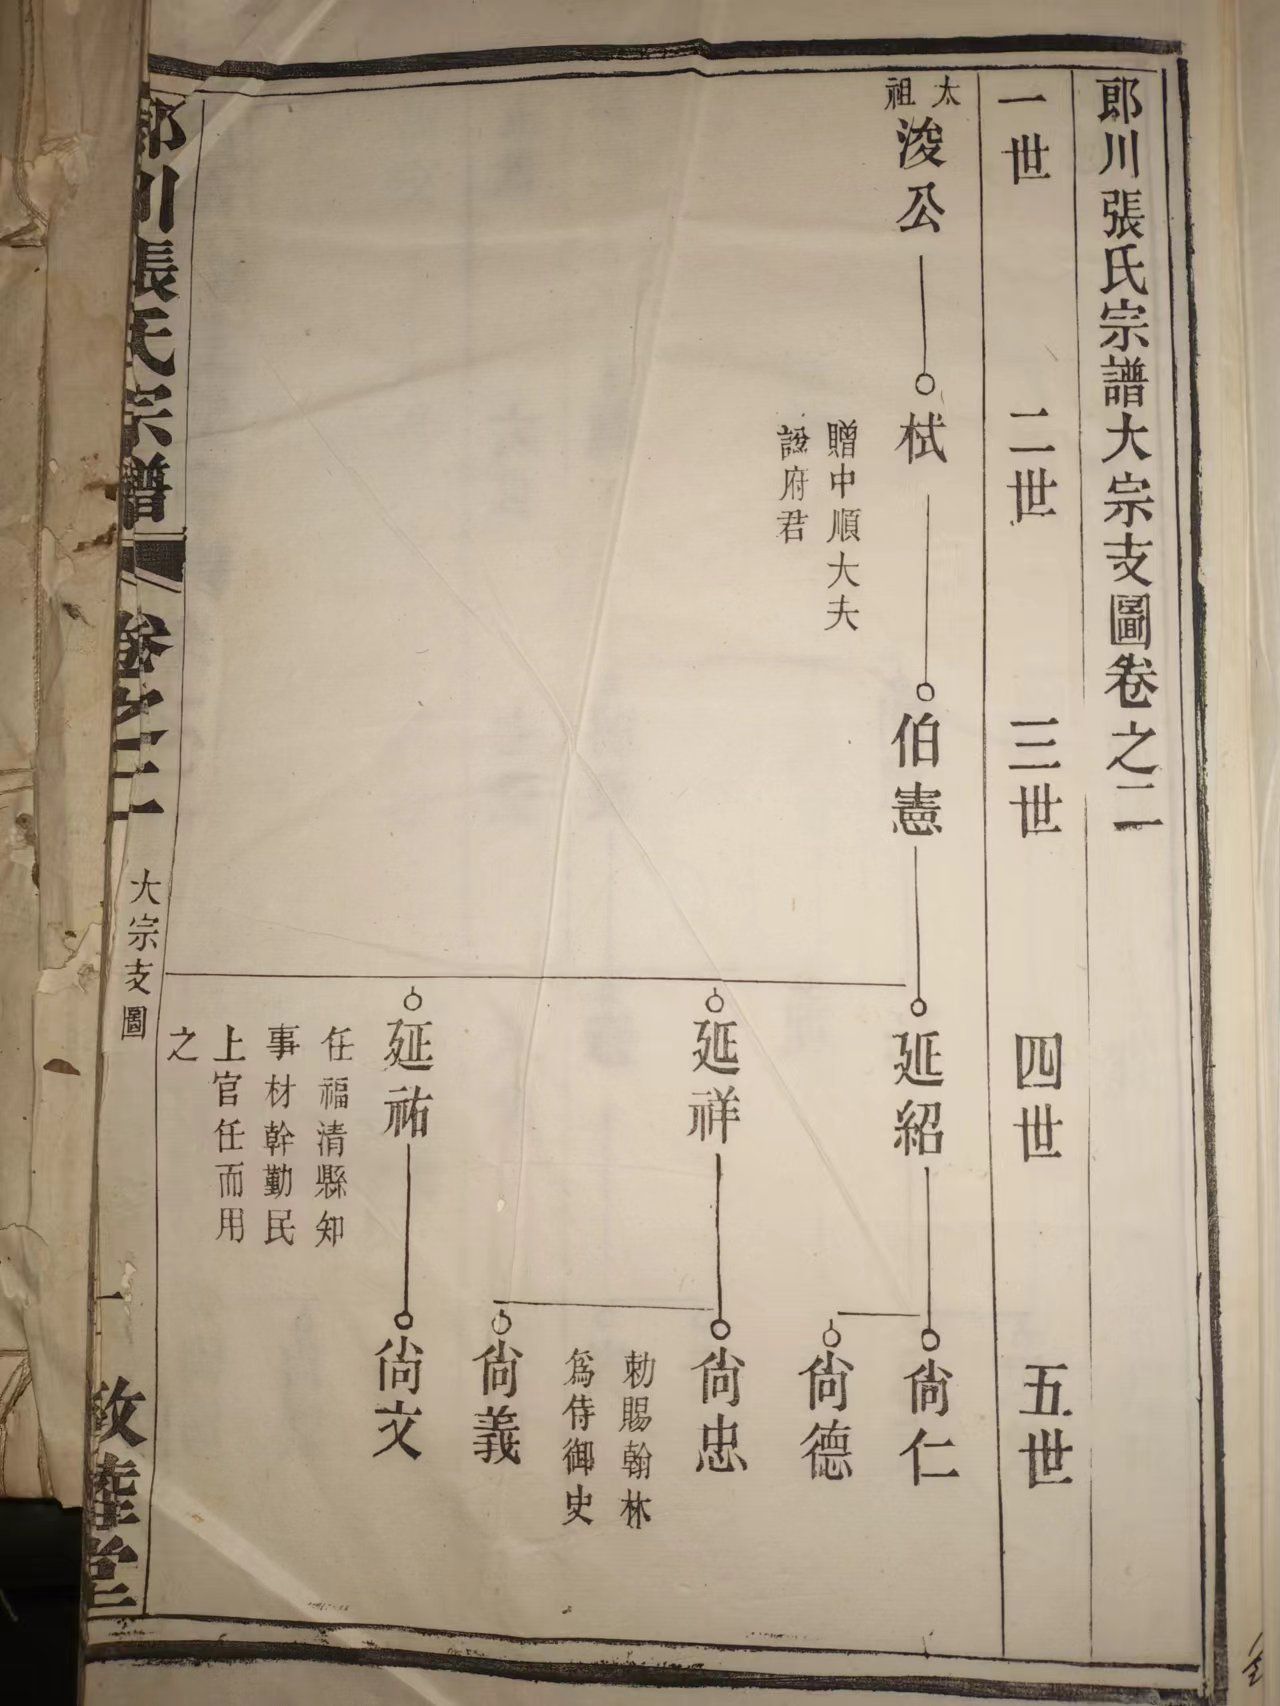 郎川張氏宗譜大宗支圖卷之二
一世
二世
三世
四世
五世
太祖
浚公
栻
贈中順大夫
諡府君
伯憲
延紹
延祥
延祐
任福清縣知
事材幹勤民
上官任而用
之
尙仁
尙德
尙忠
勅賜翰林
爲侍御史
尙義
尙文
郎川張氏宗譜
卷之二
大宗支圖
一
敦睦堂